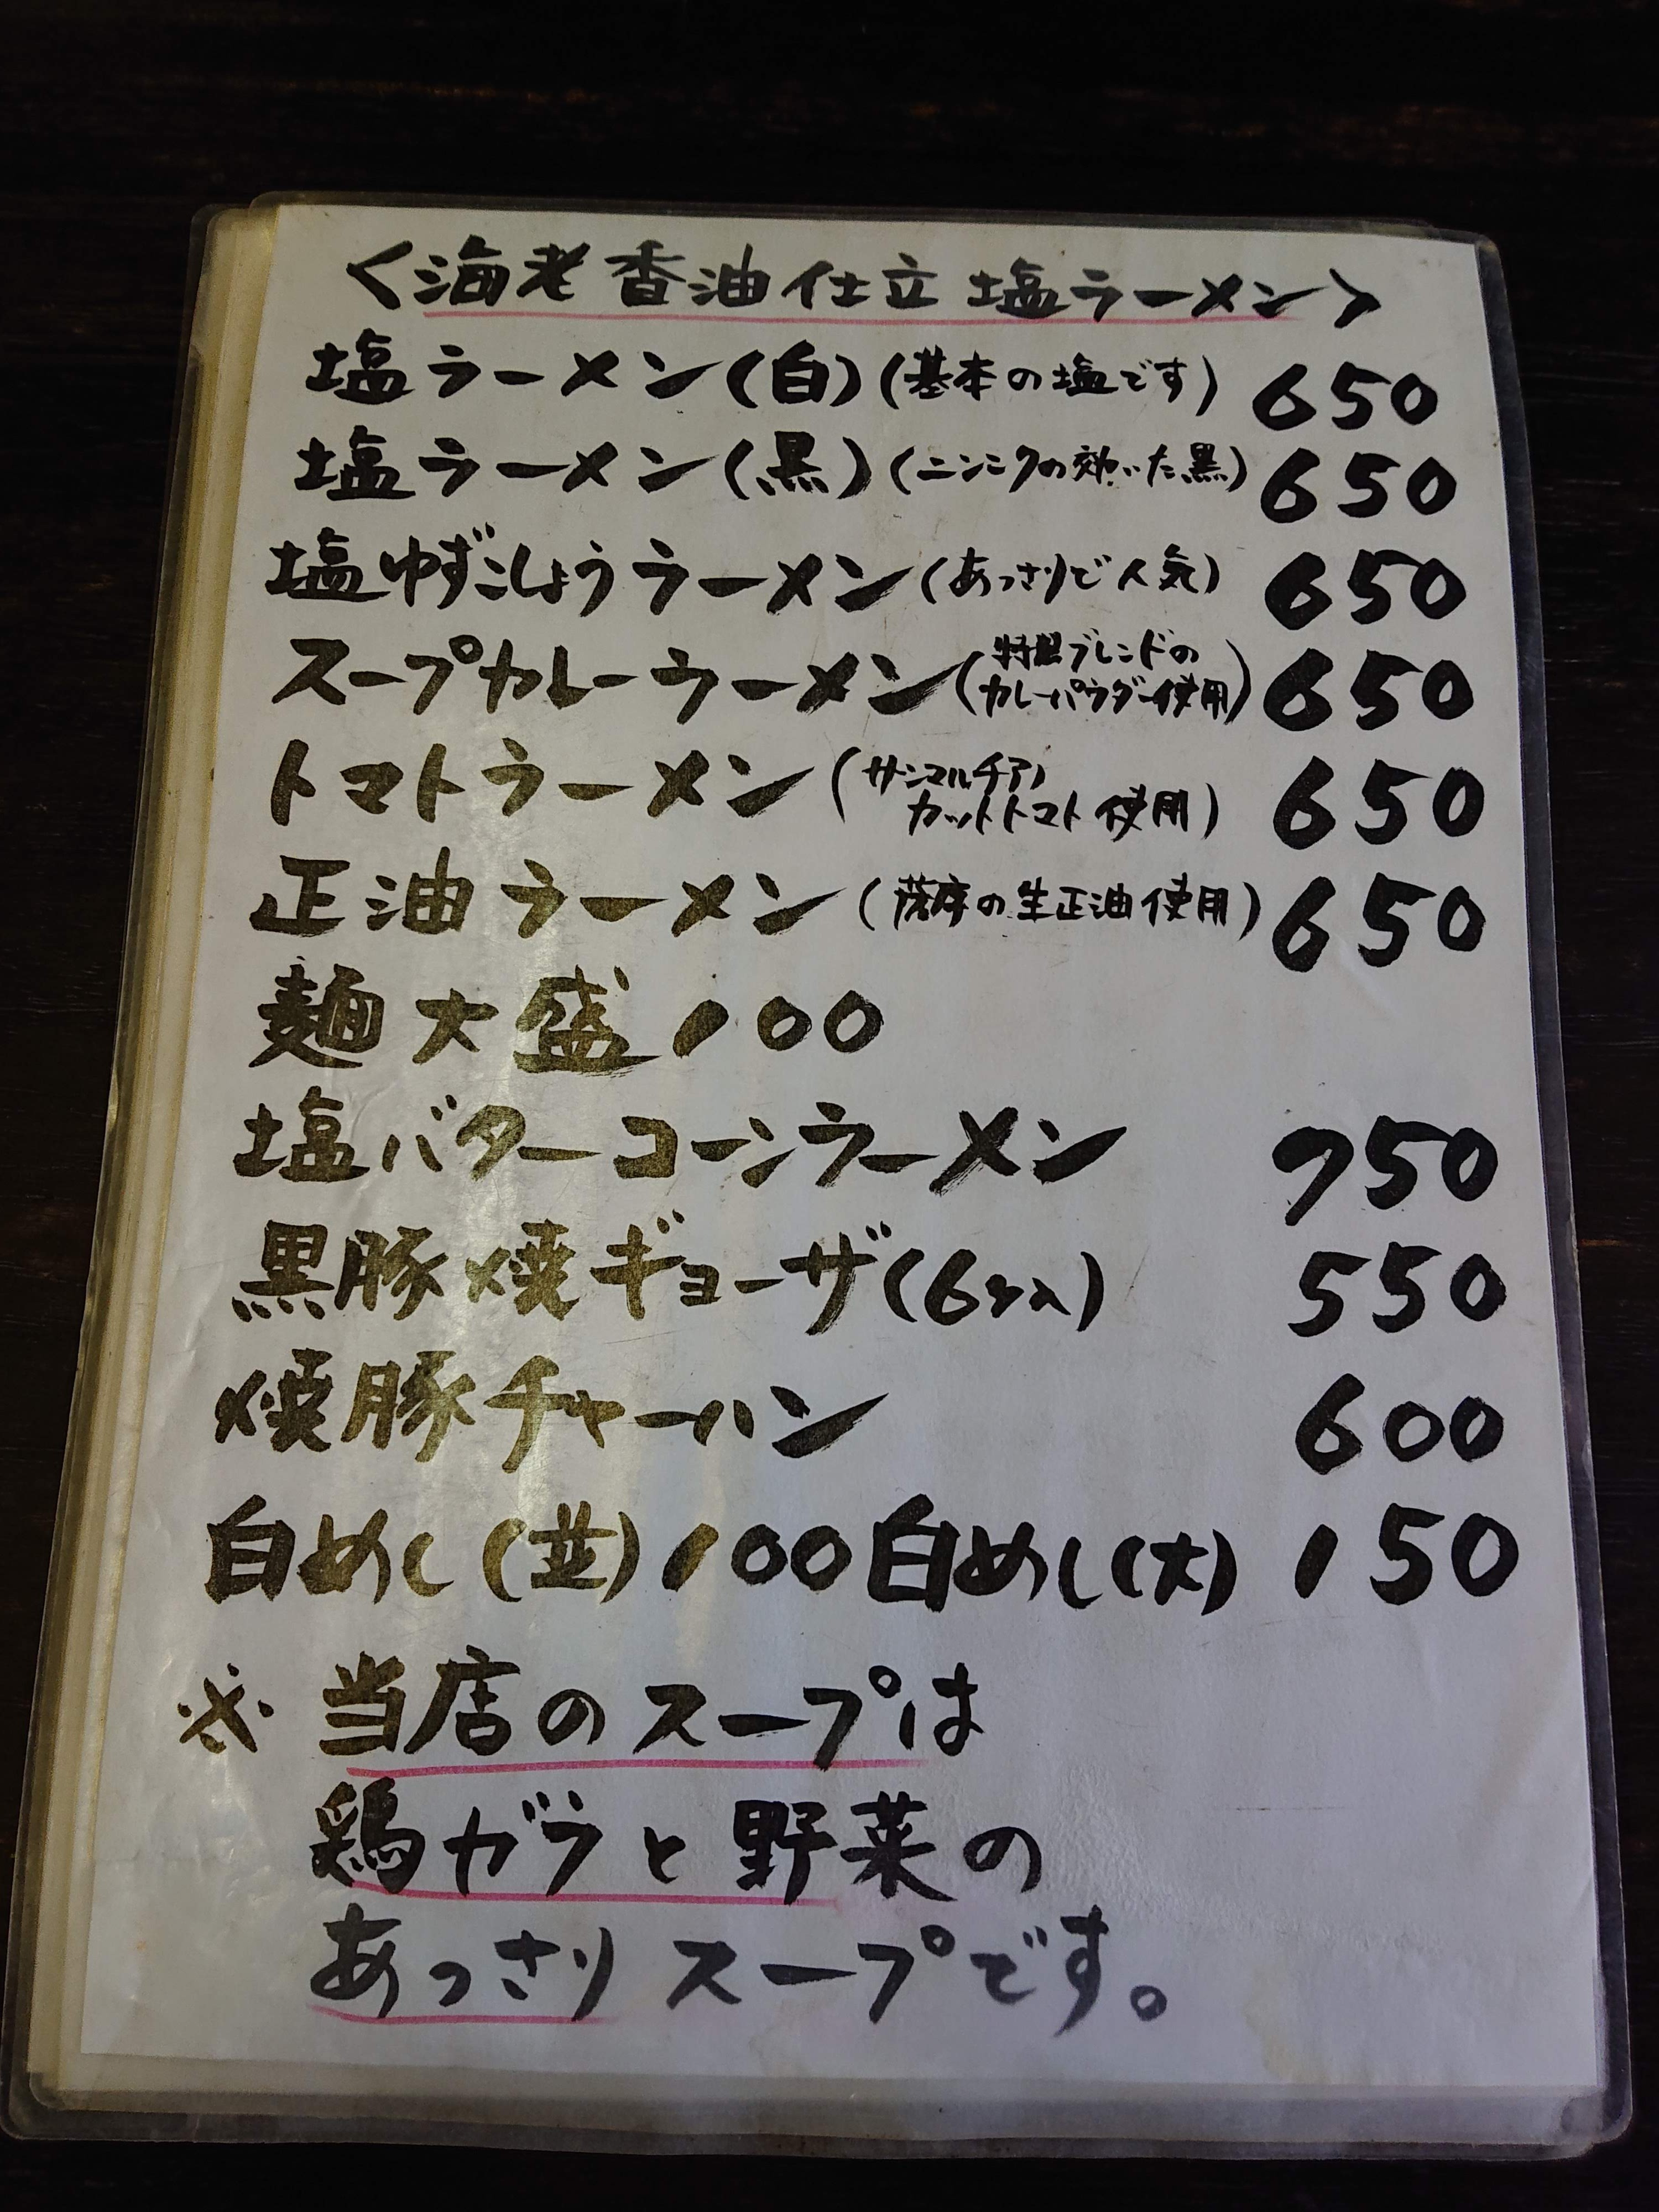 <海老香油仕立塩ラーメン>
塩ラーメン(白)(基本の塩です) 650
塩ラーメン(黒)(ニンニクの効いた黒) 650
塩ゆずこしょうラーメン(あっさりで人気) 650
スープカレーラーメン(特選ブレンドの
カレーパウダー使用) 650
トマトラーメン(サンマルチアノ
カットトマト使用) 650
正油ラーメン(薩摩の生正油使用) 650
麺大盛 100
塩バターコーンラーメン 750
黒豚焼ギョーザ(6ヶ入) 550
焼豚チャーハン 600
白めし(並) 100 白めし(大) 150
※当店のスープは
鶏ガラと野菜の
あっさりスープです。